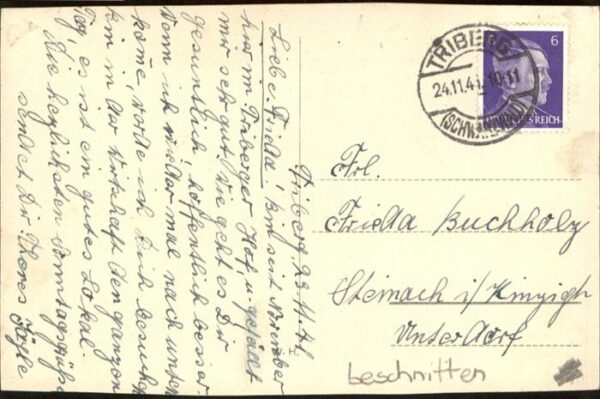 Triberg, 23.11.41
Liebe Frieda! bin seit November
hier im Triberger Hof u. gefällt
mir sehr gut. Wie geht es Dir
gesundtlich, hoffentlich besser
wenn ich wieder mal nach unten
komme, werde ich Dich besuchen
bin in der Wirtschaft den ganzen
Tag, es ist ein gutes Lokal.
Die herzlichsten Sonntagsgrüße
sendet Dir Theres
TRIBERG
24.11.41.-10-11
(SCHWARZWALD)
6
DEUTSCHES REICH
Frl.
Frieda Buchholz
Steinach i/Kinzigt
Unterdorf
beschnitten